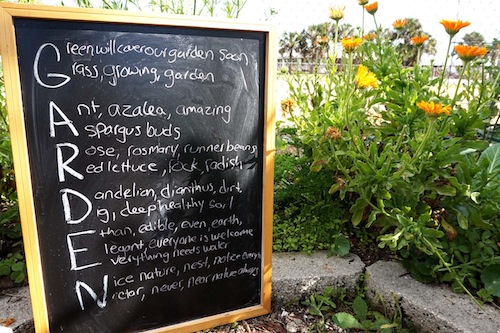 Green will cover our garden soon
Grass, growing, garden
Ant, azalea, amazing
Aspargus buds
Rose, rosmary, runner beans
Red lettuce, rock, radish
Dandelian, dianthus, dirt
Dig, deep healthy soil
Ethan, edible, even, earth,
Elegant, everyone is welcome
Everything needs water
Nice nature, nest, notice
Nectar, never, near nature always